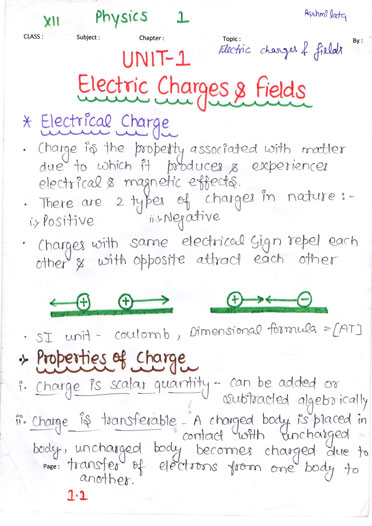 XII Physics 1 Rashmi lata
CLASS : Subject : Chapter : Topic : By :
Electric charges & fields
UNIT-1
Electric Charges & Fields
* Electrical Charge
· Charge is the property associated with matter
due to which it produces & experiences
electrical & magnetic effects.
· There are 2 types of charges in nature :-
i:> Positive ii:> Negative
· Charges with same electrical sign repel each
other & with opposite attract each other
+ + + −
· SI unit - coulomb, Dimensional formula = [AT]
Properties of Charge
i. Charge is scalar quantity - can be added or
subtracted algebrically
ii. Charge is transferable - A charged body is placed in
contact with uncharged
body, uncharged body becomes charged due to
Page : transfer of electrons from one body to
another.
1.1